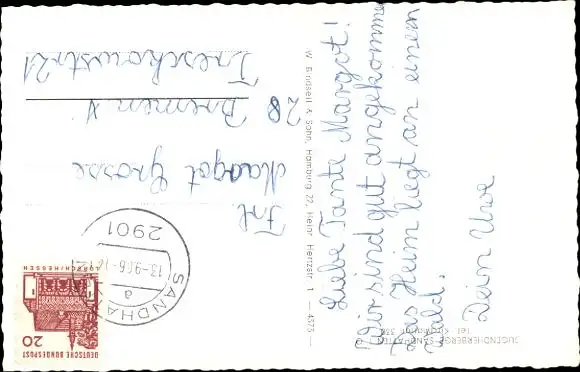 Liebe Tante Margot!
Wir sind gut angekommen
Das Heim liegt an einem
Wald.
Dein Uwe
Frl.
Margot Grosse
28 Bremen
Treskowstr 21
W. Bindseil & Sohn, Hamburg 22, Heinr. Hertzstr. 1 — 4375
JUGENDHERBERGE SANDHATTEN
2901
SANDHATTEN
a
DEUTSCHE BUNDESPOST
20
LORSCH/HESSEN